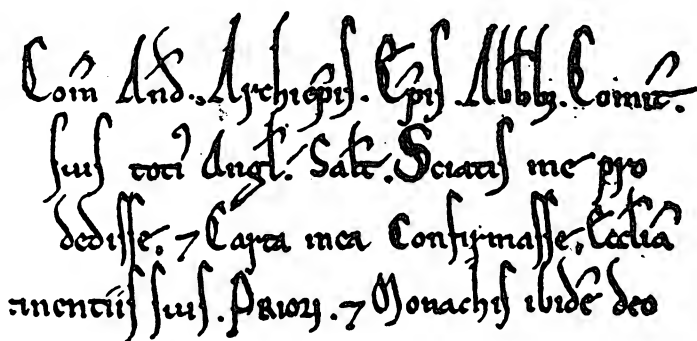 Com̃ And̃. Archiep̃is. Ep̃is. Abb̃ꝫ. Comit̃.
suis toti᾽ Angl̃. Salt̃. Sciatis me pro
dedisse. ⁊ Carta mea Confirmasse. Eccl̃iã
tinentiis suis. Priori. ⁊ Monachis ibidẽ deo